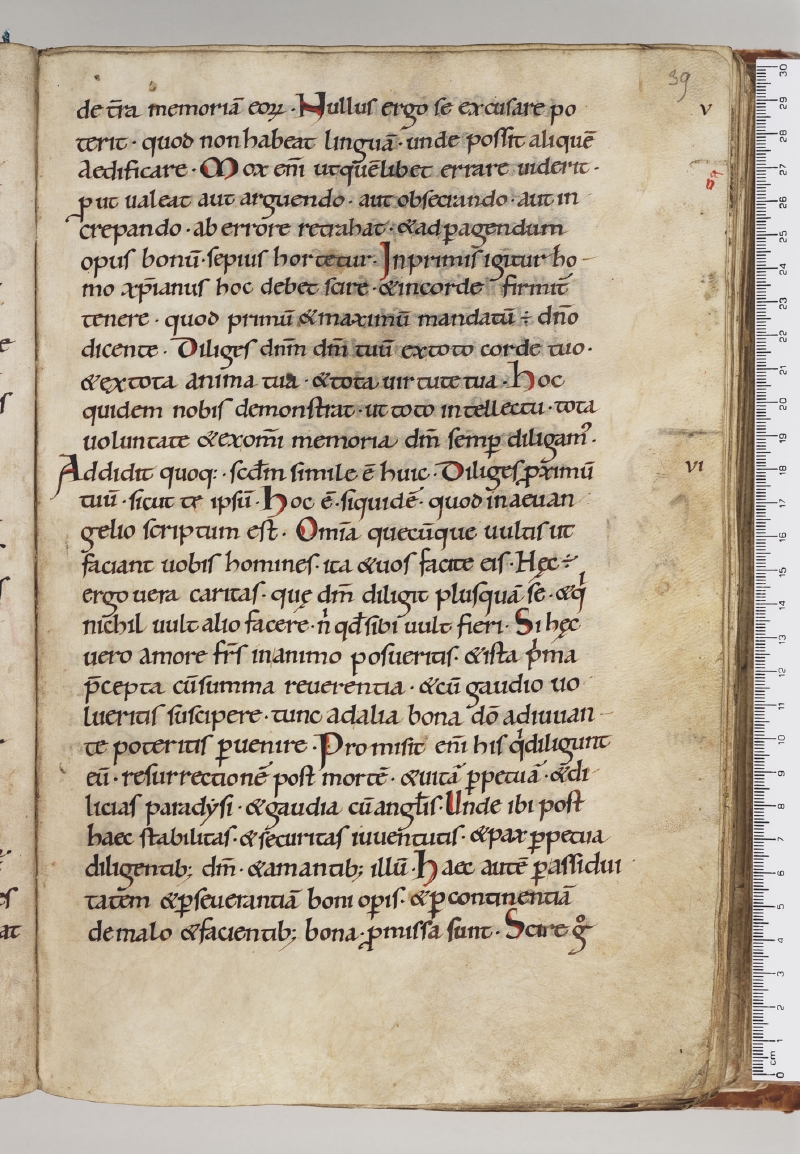 39
de t̄ra memoriā eoꝝ · Nullus ergo se excusare po
V
terit · quod non habeat linguā · unde possit aliquē
Aedificare · Mox em̄ ut quēlibet errare uiderit ·
ꝓut ualeat aut arguendo · aut obsecrando · aut in
crepando · ab errore retrahat · & ad ꝑagendum
opus bonū · sepius hortetur · Inprimis igitur ho-
mo xp̄ianus hoc debet scire · & incorde firmit̄
tenere · quod primū & maximū mandatū ÷ dn̄o
dicente · Diliges dnm̄ dm̄ tuū ex toto corde tuo ·
& ex tota anima tua · & tota uirtute tua · Hoc
quidem nobis demonstrat · ut toto intellectu · tota
uoluntate & ex om̄i memoria dm̄ semꝑ diligam᾿ ·
Addidit quoq: · scd̄m simile ē huic · Diliges ꝓximū
VI
tuū · sicut te ipsū · Hoc ē · siquidē · quod in aeuan
gelio scriptum est · Om̄ia quecūque uultis ut
faciant uobis homines · ita & uos facite eis · Hęc ÷
ergo uera caritas · quę dm̄ diligit plusquā se · & qͥ
nichil uult alio facere · nͥ qd̄ sibi uult fieri · Si hęc
uero amore fr̄s in animo posueritis · & ista pͥma
p̄cepta cū summa reuerentia · & cū gaudio uo
lueritis suscipere · tunc ad alia bona dō adiuuan-
te poteritis ꝑuenire · Promisit em̄ his qͥ diligunt
eū · resurrectionē post mortē · & uitā ꝑpetuā · & di
licias paradẏsi · & gaudia cū angl̄is · Unde ibi post
haec stabilitas · & securitas iuuentutis · & pax ꝑpetua
diligentib; dm̄ · & amantib; illū · Haec autē ꝑ assidui
tatem & ꝑseuerantiā boni opis · & ꝑ continentiā
de malo & facientib; bona · ꝓmissa sunt · Scire gͦ